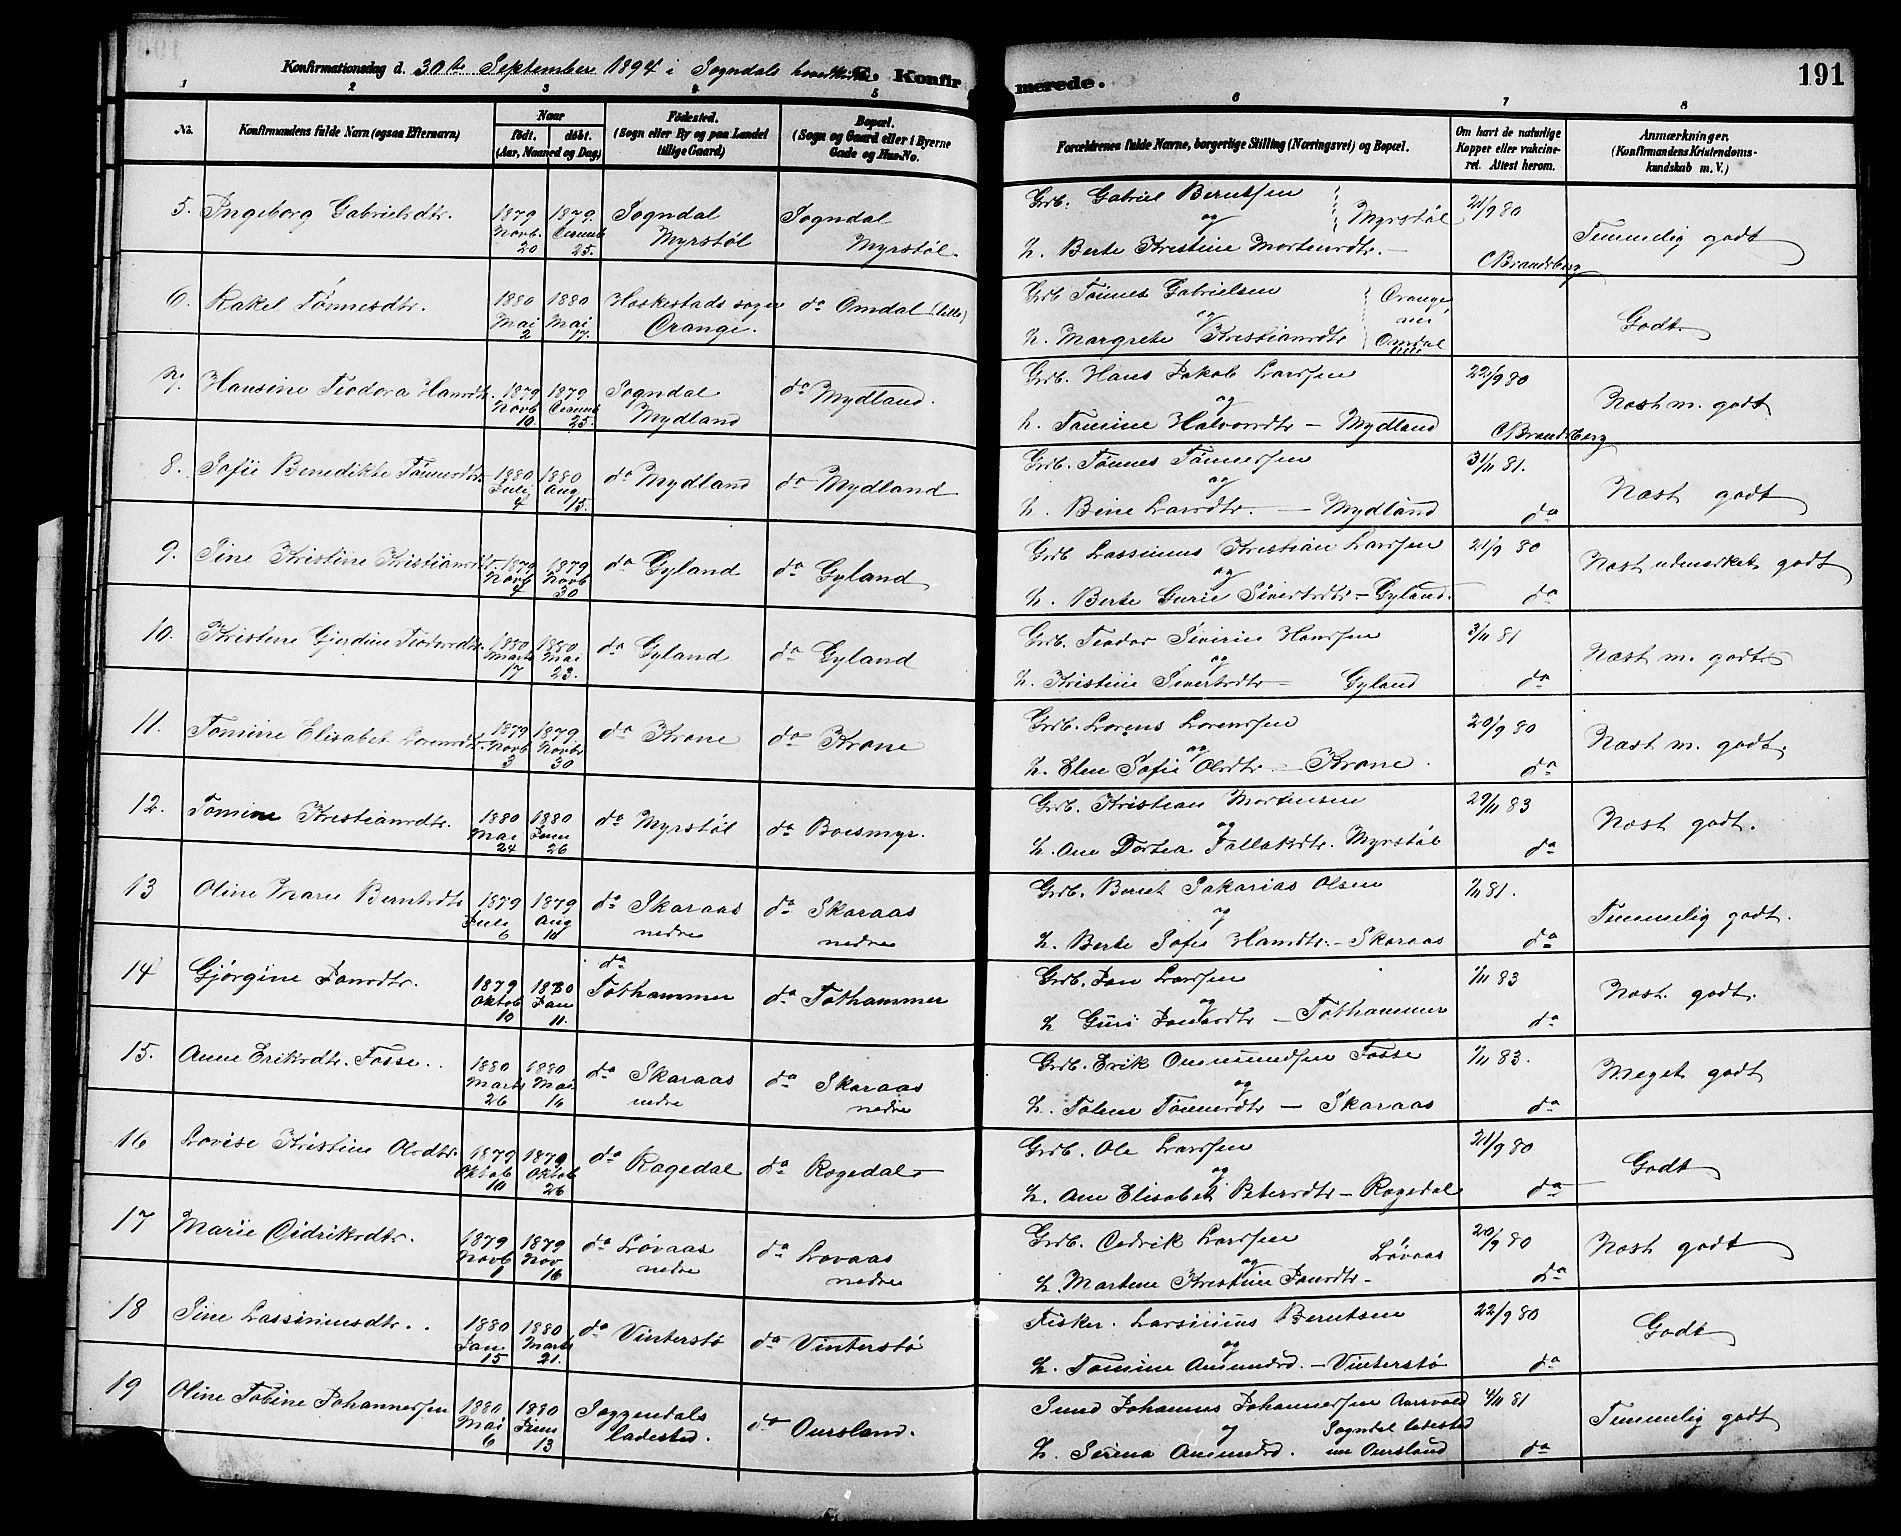 191
Konfirmationsdag d. 30te September 1894 i Sogndals hovedkirke C. Konfirmerede.
1 2 3 4 5 6 7 8
No. Konfirmandens fulde Navn (ogsaa Efternavn) Naar født. døbt. (Aar, Maaned og Dag) Fødested. (Sogn eller By og paa Landet tillige Gaard) Bopæl. (Sogn og Gaard eller i Byerne Gade og Hus-No. Forældrenes fulde Navne, borgerlige Stilling (Næringsvei) og Bopæl. Om havt de naturlige Kopper eller vakcineret. Attest herom. Anmærkninger. (Konfirmandens Kristendomskundskab m. V.)
5. Ingeborg Gabrielsdtr. 1879 Novb. 20 1879. Decemb 25. Sogndal Myrstøl Sogndal Myrstøl. Grdb. Gabriel Berntsen og h. Berte Kristine Mortensdtr. Myrstøl 21/9 80 C Brandsberg Temmelig godt
6. Rakel Tønnesdtr. 1880 Mai 2 1880 Mai 17. Heskestads sogn Orange. do Omdal (lille) Grdb Tønnes Gabrielsen og h. Margrete Kristiansdtr Orange nu Omdal lille Godt
7. Hansine Teodora Hansdtr. 1879 Novb 10 1879 Decemb 25. Sogndal Mydland do Mydland. Grdb. Hans Jakob Larssen og h. Tomine Halvorsdtr - Mydland 22/9 80 C Brandsberg Næst m. godt
8. Sofie Benedikte Tønnesdtr. 1880 Juli 4 1880 Aug 15. do Mydland do Mydland Grdb. Tønnes Tønnessen og h. Bine Larsdtr. - Mydland 3/11 81. do Næst godt
9. Sine Kristine Kristiansdtr. 1879 Novb 4 1879 Novb 30 do Gyland do Gyland Grdb Lassinus Kristian Larssen og h. Berte Gurie Sivertsdtr - Gyland. 21/9 80 do Næst udmerket godt
10. Kristene Gjerdine Teodorsdtr. 1880 Marts 17 1880 Mai 23. do Gyland do Gyland Grdb. Teodor Siverin Hanssen og h. Kristine Sivertsdtr - Gyland 3/11 81 do Næst m. godt
11. Tomine Elisabet Lorensdtr. 1879 Novb 3 1879. Novbr 30 do Krone do Krone Grdb. Lorens Lorenssen og h. Elen Sofie Olsdtr - Krone. 20/9 80 do Næst m. godt.
12. Tomine Kristiansdtr. 1880 Mai 24 1880 Juni 26 do Myrstøl do Boesmyr. Grdb. Kristian Mortensen og h. Ane Dortea Tallaksdtr. Myrstøl 29/11 83 do Næst godt.
13 Oline Marie Berntsdtr 1879 Juli 6 1879 Aug 10 do Skaraas nedre do Skaraas nedre Grdb. Bernt Sakarias Olsen og h. Berte Sofie Hansdtr. - Skaraas 1/11 81. do Temmelig godt.
14 Gjørgine Jansdtr. 1879 Oktob 19 1880 Jan 11. do Tothammer do Tothammer Grdb. Jan Larssen og h Guri Jonasdtr - Tothammer 1/11 83 do Næst godt.
15. Anne Eriksdtr. Fosse.. 1880 Marts 26 1880 Mai 16 do Skaraas nedre do Skaraas nedre Grdb. Erik Ommundsen Fosse og h. Tolene Tønnesdtr - Skaraas 1/11 83. do Meget godt
16 Lovise Kristine Olsdtr. 1879 Oktob 10 1879 Oktob 26 do Rægedal do Rægedal Grdb. Ole Larssen og h. Ane Elisabet Petersdtr - Rægedal 21/9 80 do Godt
17 Marie Didriksdtr. 1879 Novb 1 1879 Nov 16 do Løvaas nedre do Lovaas nedre Grdb. Cedrik Larssen og h. Martine Kristine Jansdtr - Løvaas 20/9 80 do Næst godt
18 Sine Lassinusdtr.. 1880 Jan 15 1880 Marts 21. do Vinterstø do Vinterstø Fisker. Larsinius Berntsen og h. Tomine Amundsd. - Vinterstø 22/9 80 do Godt
19 Oline Tobine Johannessen 1880 Mai 6 1880 Juni 13 Soggendals ladested. do Oursland. Smed Johannes Johannessen Aarsvold og h. Serina Amundsd. Sogndal ladested nu Oursland 4/11 81 do Temmelig godt